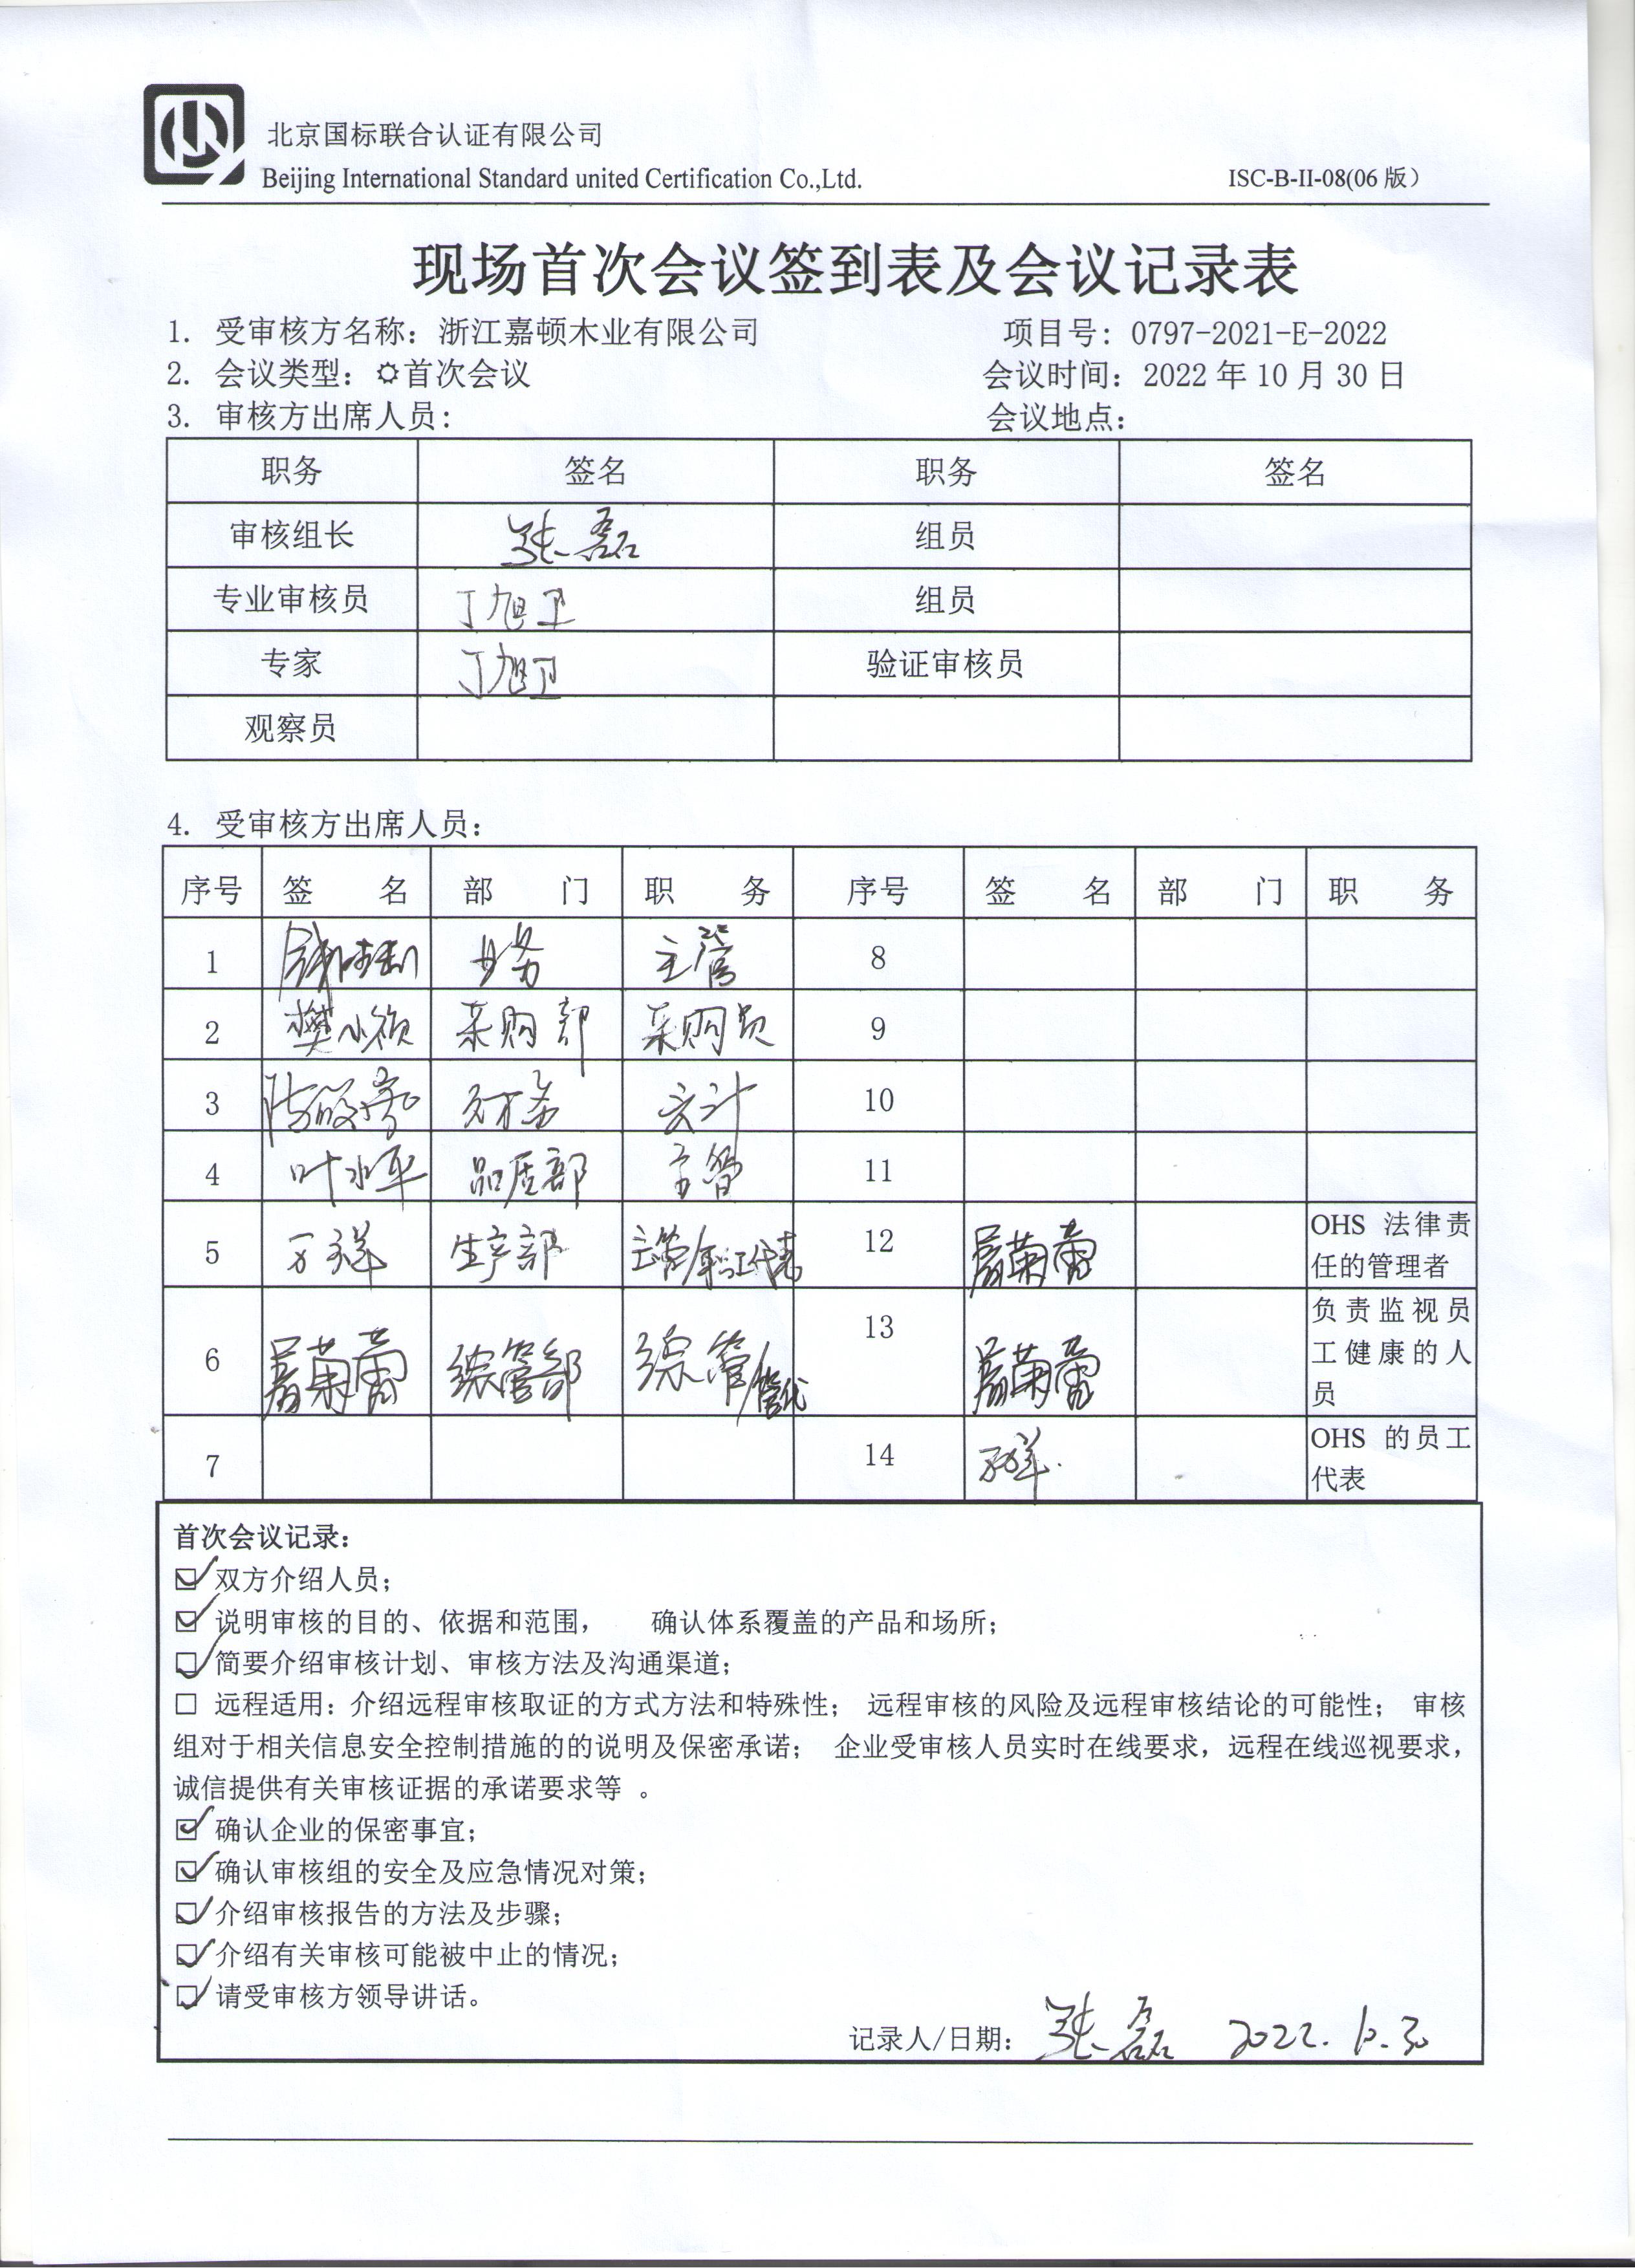 北京国标联合认证有限公司
Beijing International Standard united Certification Co.,Ltd.
ISC-B-II-08(06 版）
现场首次会议签到表及会议记录表
1. 受审核方名称：浙江嘉顿木业有限公司 项目号：0797-2021-E-2022
2. 会议类型：☼首次会议 会议时间：2022 年 10 月 30 日
3. 审核方出席人员： 会议地点：
职务 签名 职务 签名
审核组长 张磊 组员
专业审核员 丁旭卫 组员
专家 丁旭卫 验证审核员
观察员
4. 受审核方出席人员：
序号 签 名 部 门 职 务 序号 签 名 部 门 职 务
1 业务 主管 8
2 樊小颂 采购部 采购员 9
3 财务 会计 10
4 叶水平 品质部 主管 11
5 生产部 主管/ 代表 12 OHS 法律责
任的管理者
6 综管部 综管/管代 13 负责监视员
工健康的人
员
7 14 OHS 的员工
代表
首次会议记录：
☑双方介绍人员；
☑说明审核的目的、依据和范围， 确认体系覆盖的产品和场所；
☑简要介绍审核计划、审核方法及沟通渠道；
□ 远程适用：介绍远程审核取证的方式方法和特殊性； 远程审核的风险及远程审核结论的可能性； 审核
组对于相关信息安全控制措施的的说明及保密承诺； 企业受审核人员实时在线要求，远程在线巡视要求，
诚信提供有关审核证据的承诺要求等 。
☑确认企业的保密事宜；
☑确认审核组的安全及应急情况对策；
☑介绍审核报告的方法及步骤；
☑介绍有关审核可能被中止的情况；
☑请受审核方领导讲话。
记录人/日期： 张磊 2022.10.30